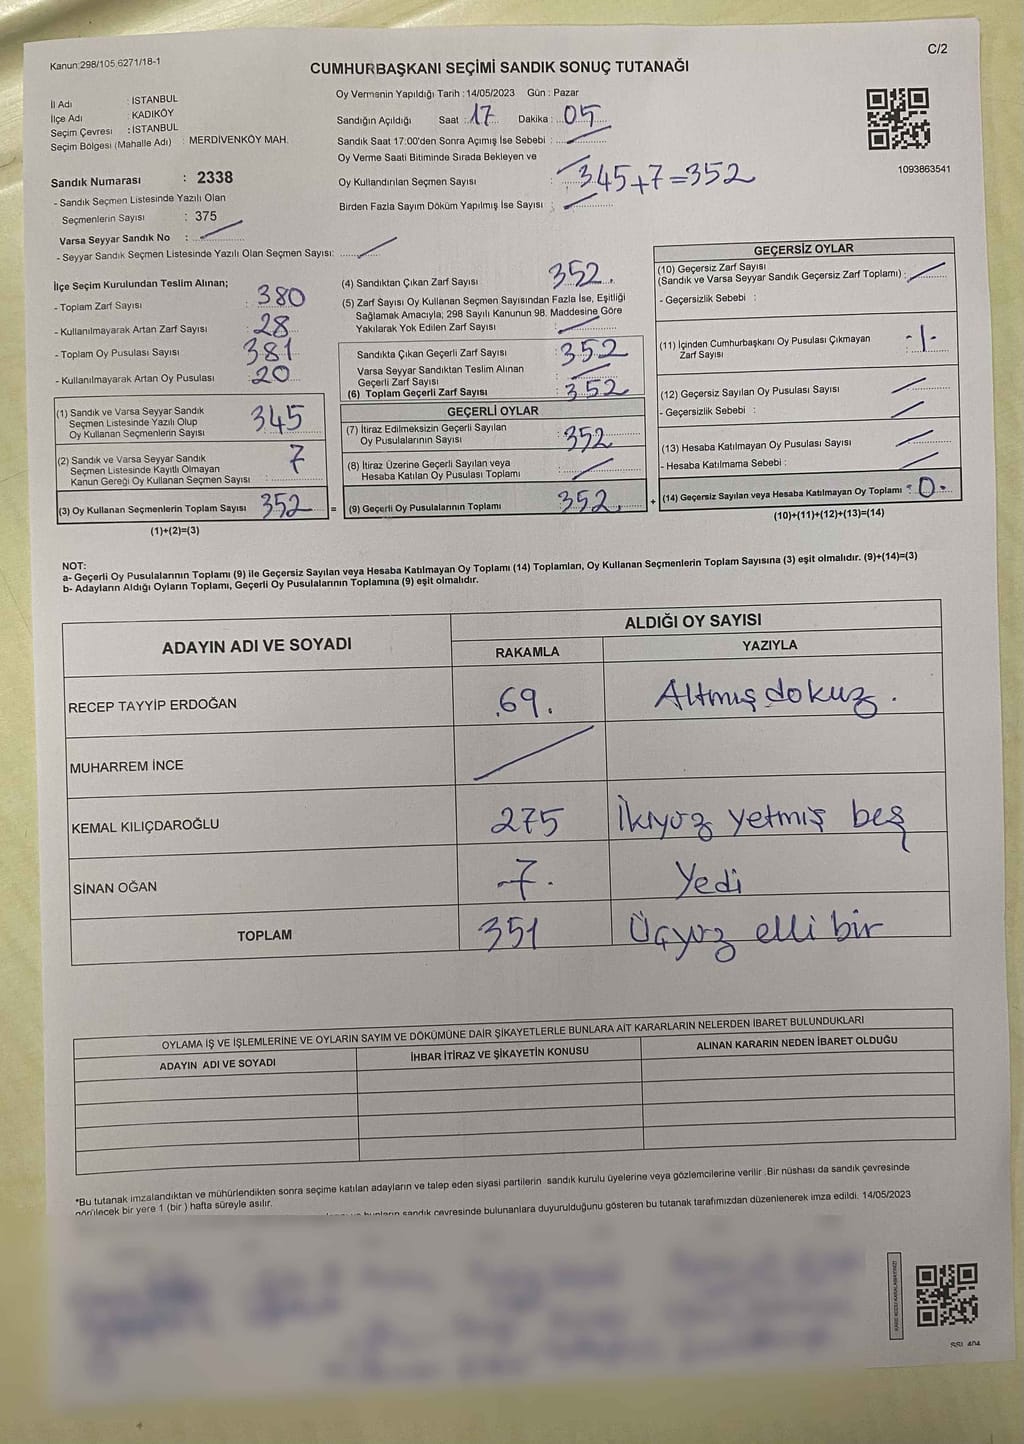 Kanun:298/105,6271/18-1
C/2
CUMHURBAŞKANI SEÇİMİ SANDIK SONUÇ TUTANAĞI
İl Adı : İSTANBUL
İlçe Adı : KADIKÖY
Seçim Çevresi : İSTANBUL
Seçim Bölgesi (Mahalle Adı) : MERDİVENKÖY MAH.
Sandık Numarası : 2338
- Sandık Seçmen Listesinde Yazılı Olan
Seçmenlerin Sayısı : 375
Varsa Seyyar Sandık No :
- Seyyar Sandık Seçmen Listesinde Yazılı Olan Seçmen Sayısı:
Oy Vermenin Yapıldığı Tarih :14/05/2023 Gün : Pazar
Sandığın Açıldığı Saat : 17 Dakika : 05
Sandık Saat 17:00'den Sonra Açımış İse Sebebi :
Oy Verme Saati Bitiminde Sırada Bekleyen ve
Oy Kullandırılan Seçmen Sayısı : 345+7=352
Birden Fazla Sayım Döküm Yapılmış İse Sayısı :
1093863541
İlçe Seçim Kurulundan Teslim Alınan;
- Toplam Zarf Sayısı : 380
- Kullanılmayarak Artan Zarf Sayısı : 28
- Toplam Oy Pusulası Sayısı : 381
- Kullanılmayarak Artan Oy Pusulası : 20
(1) Sandık ve Varsa Seyyar Sandık
Seçmen Listesinde Yazılı Olup
Oy Kullanan Seçmenlerin Sayısı 345
(2) Sandık ve Varsa Seyyar Sandık
Seçmen Listesinde Kayıtlı Olmayan
Kanun Gereği Oy Kullanan Seçmen Sayısı 7
(3) Oy Kullanan Seçmenlerin Toplam Sayısı 352 =
(1)+(2)=(3)
(4) Sandıktan Çıkan Zarf Sayısı 352.
(5) Zarf Sayısı Oy Kullanan Seçmen Sayısından Fazla İse, Eşitliği
Sağlamak Amacıyla; 298 Sayılı Kanunun 98. Maddesine Göre
Yakılarak Yok Edilen Zarf Sayısı :
Sandıkta Çıkan Geçerli Zarf Sayısı : 352
Varsa Seyyar Sandıktan Teslim Alınan
Geçerli Zarf Sayısı :
(6) Toplam Geçerli Zarf Sayısı : 352
GEÇERLİ OYLAR
(7) İtiraz Edilmeksizin Geçerli Sayılan
Oy Pusulalarının Sayısı : 352
(8) İtiraz Üzerine Geçerli Sayılan veya
Hesaba Katılan Oy Pusulası Toplamı :
(9) Geçerli Oy Pusulalarının Toplamı : 352 +
GEÇERSİZ OYLAR
(10) Geçersiz Zarf Sayısı
(Sandık ve Varsa Seyyar Sandık Geçersiz Zarf Toplamı) :
- Geçersizlik Sebebi :
(11) İçinden Cumhurbaşkanı Oy Pusulası Çıkmayan
Zarf Sayısı : -1-
(12) Geçersiz Sayılan Oy Pusulası Sayısı :
- Geçersizlik Sebebi :
(13) Hesaba Katılmayan Oy Pusulası Sayısı :
- Hesaba Katılmama Sebebi :
(14) Geçersiz Sayılan veya Hesaba Katılmayan Oy Toplamı : 0
(10)+(11)+(12)+(13)=(14)
NOT:
a- Geçerli Oy Pusulalarının Toplamı (9) ile Geçersiz Sayılan veya Hesaba Katılmayan Oy Toplamı (14) Toplamları, Oy Kullanan Seçmenlerin Toplam Sayısına (3) eşit olmalıdır. (9)+(14)=(3)
b- Adayların Aldığı Oyların Toplamı, Geçerli Oy Pusulalarının Toplamına (9) eşit olmalıdır.
ADAYIN ADI VE SOYADI
ALDIĞI OY SAYISI
RAKAMLA YAZIYLA
RECEP TAYYİP ERDOĞAN 69. Altmış dokuz.
MUHARREM İNCE
KEMAL KILIÇDAROĞLU 275 İkiyüz yetmiş beş
SİNAN OĞAN -7- Yedi
TOPLAM 351 Üçyüz elli bir
OYLAMA İŞ VE İŞLEMLERİNE VE OYLARIN SAYIM VE DÖKÜMÜNE DAİR ŞİKAYETLERLE BUNLARA AİT KARARLARIN NELERDEN İBARET BULUNDUKLARI
ADAYIN ADI VE SOYADI İHBAR İTİRAZ VE ŞİKAYETİN KONUSU ALINAN KARARIN NEDEN İBARET OLDUĞU
*Bu tutanak imzalandıktan ve mühürlendikten sonra seçime katılan adayların ve talep eden siyasi partilerin sandık kurulu üyelerine veya gözlemcilerine verilir. Bir nüshası da sandık çevresinde
görülecek bir yere 1 (bir) hafta süreyle asılır.
bunların sandık çevresinde bulunanlara duyurulduğunu gösteren bu tutanak tarafımızdan düzenlenerek imza edildi. 14/05/2023